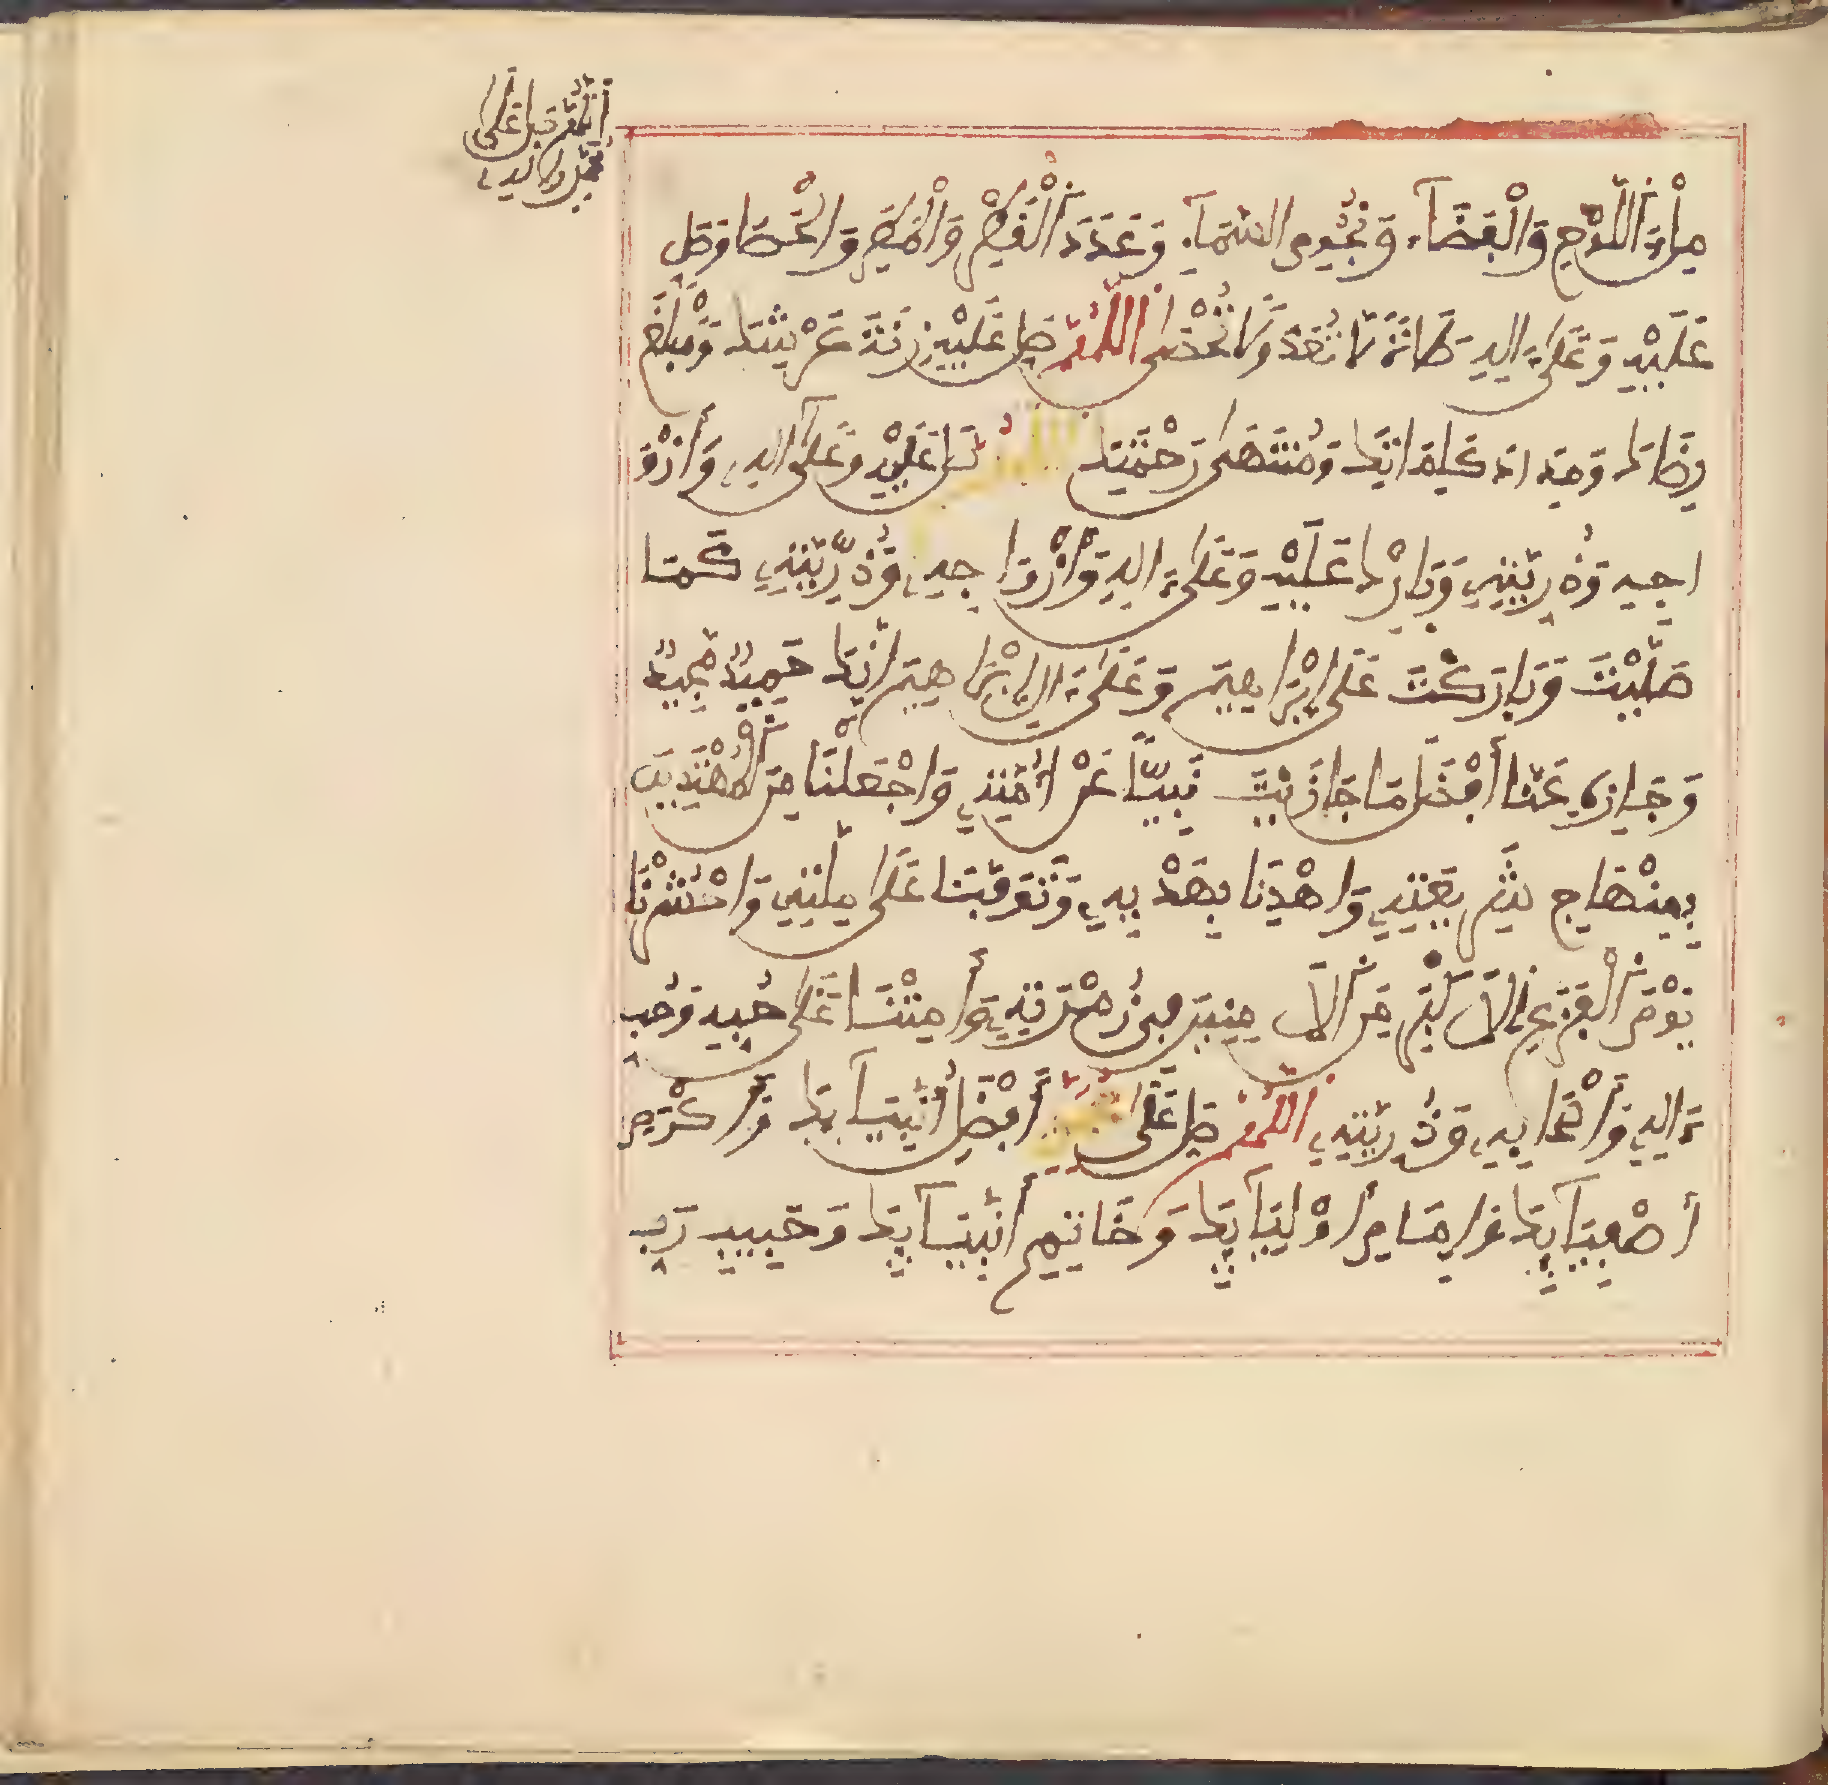 مِلْءَ اللَّوْحِ وَالْفَضَآءِ وَنُجُومِ السَّمَآءِ وَعَدَدَ الْقَطْرِ وَالْمَطَرِ وَالْحَصَا وَصَلِّ
عَلَيْهِ وَعَلَىٰٓ ءَالِهِ صَلَاةً لَا تُعَدُّ وَلَا تُحْصَى اللَّهُمَّ صَلِّ عَلَيْهِ زِنَةَ عَرْشِكَ وَمَبْلَغَ
رِضَاكَ وَمِدَادَ كَلِمَاتِكَ وَمُنْتَهَى رَحْمَتِكَ اللَّهُمَّ صَلِّ عَلَيْهِ وَعَلَىٰٓ ءَالِهِ وَأَزْوَ
اجِهِ وَذُرِّيَّتِهِ وَبَارِكْ عَلَيْهِ وَعَلَىٰٓ ءَالِهِ وَأَزْوَاجِهِ وَذُرِّيَّتِهِ كَمَا
صَلَّيْتَ وَبَارَكْتَ عَلَى إِبْرَاهِيمَ وَعَلَىٰٓ ءَالِ إِبْرَاهِيمَ إِنَّكَ حَمِيدٌ مَجِيدٌ
وَجَازِهِ عَنَّا أَفْضَلَ مَا جَازَيْتَ نَبِيًّا عَنْ أُمَّتِهِ وَاجْعَلْنَا مِنَ الْمُهْتَدِينَ
بِمِنْهَاجِ شَرِيعَتِهِ وَاهْدِنَا بِهَدْيِهِ وَتَوَفَّنَا عَلَى مِلَّتِهِ وَاحْشُرْنَا
يَوْمَ الْفَزَعِ الْأَكْبَرِ مِنَ الْآمِنِينَ فِي زُمْرَتِهِ وَأَمِتْنَا عَلَى حُبِّهِ وَحُبِّ
ءَالِهِ وَأَصْحَابِهِ وَذُرِّيَّتِهِ اللَّهُمَّ صَلِّ عَلَى مُحَمَّدٍ أَفْضَلِ أَنْبِيَآئِكَ وَأَكْرَمِ
أَصْفِيَآئِكَ وَإِمَامِ أَوْلِيَآئِكَ وَخَاتِمِ أَنْبِيَآئِكَ وَحَبِيبِ رَبِّ